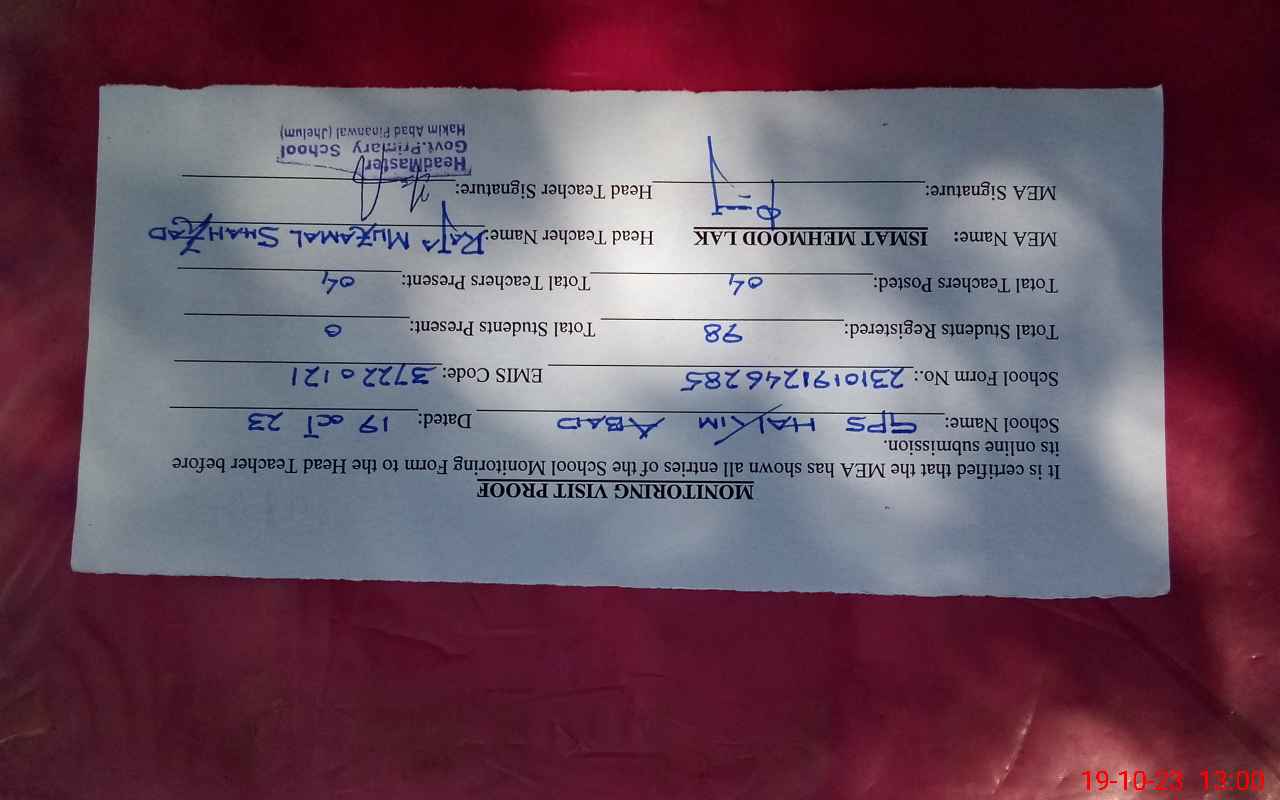 MONITORING VISIT PROOF
It is certified that the MEA has shown all entries of the School Monitoring Form to the Head Teacher before
its online submission.
School Name: GPS HAKIM ABAD Dated: 19 OCT 23
School Form No.: 2310191246285 EMIS Code: 37220121
Total Students Registered: 98 Total Students Present: 0
Total Teachers Posted: 04 Total Teachers Present: 04
MEA Name: ISMAT MEHMOOD LAK Head Teacher Name: RAJA MUZAMAL SHAHZAD
MEA Signature: Head Teacher Signature:
HeadMaster
Govt.Primary School
Hakim Abad Pinanwal (Jhelum)
19-10-23 13:00